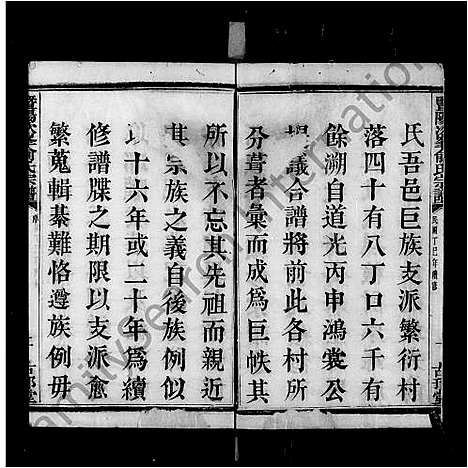 氏吾邑巨族支派繁衍村
落四十有八丁口六千有
餘溯自道光丙申鴻裳公
提議合譜將前此各村所
分葺者彙而成爲巨帙其
所以不忘其先祖而親近
其宗族之義自後族例似
以十六年或二十年爲續
修譜牒之期限以支派愈
繁蒐輯綦難恪遵族例毋
FamilySearch International